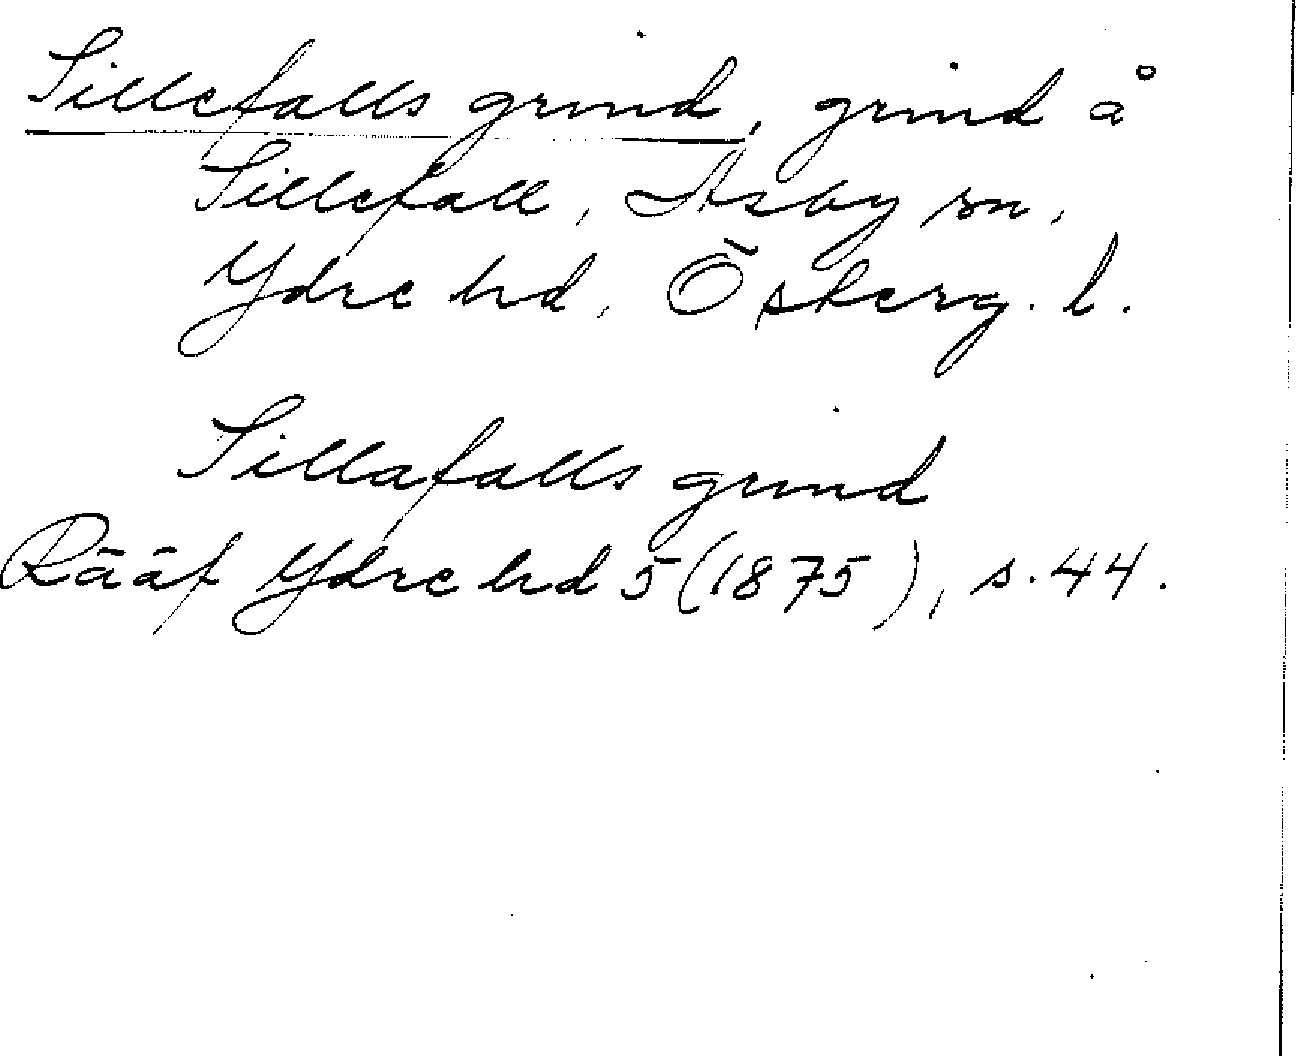 Sillefalls grind, grind å
Sillefall, Asby sn,
Ydre hd, Östkerg. l.
Sillafalls grind
Rääf Ydre hd 5 (1875), s. 44.